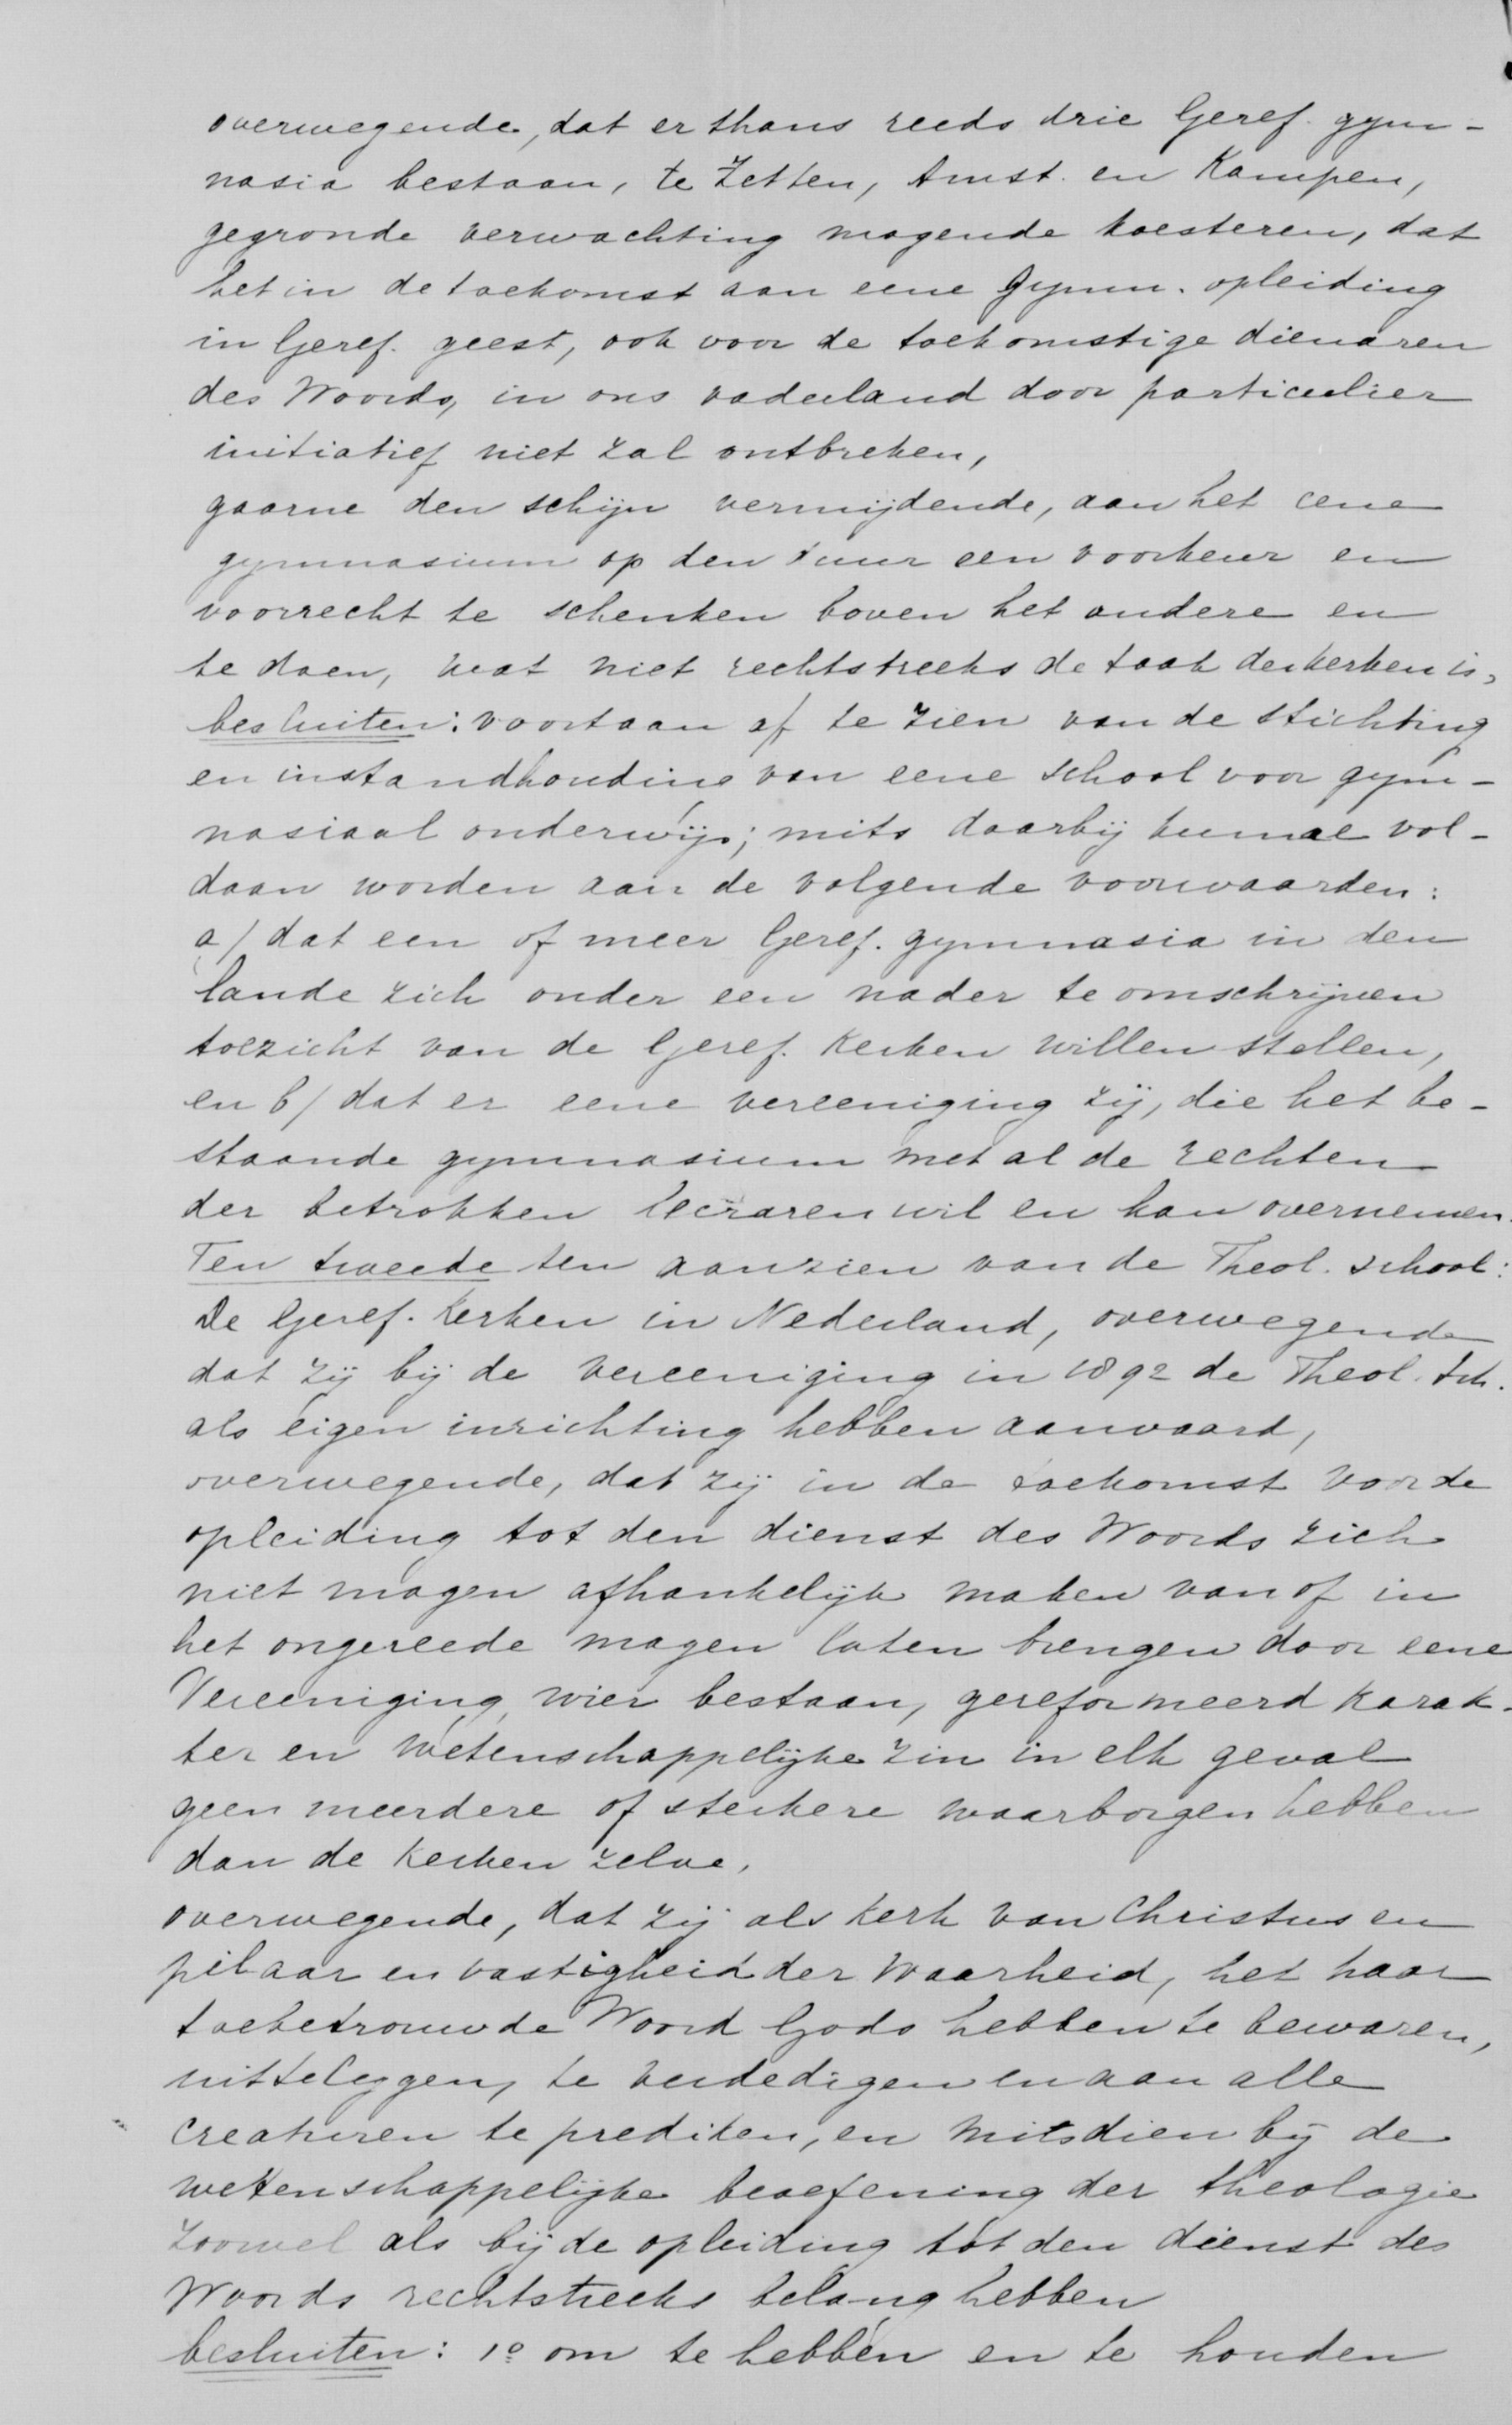 overwegende, dat er thans reeds drie Geref. gym-
nasia bestaan, te Zetten, Amst. en Kampen,
gegronde verwachting mogende koesteren, dat
het in de toekomst aan eene Gymn. opleiding
in Geref. geest, ook voor de toekomstige dienaren
des Woords, in ons vaderland door particulier
initiatief niet zal ontbreken,
gaarne den schijn vermijdende, aan het eene
gymnasium op den duur een voorkeur en
voorrecht te schenken boven het andere en
te doen, wat niet rechtstreeks de taak der kerken is,
besluiten: voortaan af te zien van de stichting
en instandhouding van eene school voor gym-
nasiaal onderwijs; mits daarbij kunne vol-
daan worden aan de volgende voorwaarden:
a/ dat een of meer Geref. gymnasia in den
lande zich onder een nader te omschrijven
toezicht van de Geref. Kerken willen stellen,
en b/ dat er eene vereeniging zij, die het be-
staande gymnasium met al de rechten
der betrokken leeraren wil en kan overnemen.
Ten tweede ten aanzien van de Theol. School:
De Geref. Kerken in Nederland, overwegende
dat zij bij de vereeniging in 1892 de Theol. Sch.
als eigen inrichting hebben aanvaard,
overwegende, dat zij in de toekomst voor de
opleiding tot den dienst des Woords zich
niet mogen afhankelijk maken van of in
het ongereede mogen laten brengen door eene
Vereeniging, wier bestaan, gereformeerd karak-
ter en wetenschappelijke zin in elk geval
geen meerdere of sterkere waarborgen hebben
dan de Kerken zelve,
overwegende, dat zij als Kerk van Christus en
pilaar en vastigheid der Waarheid, het haar
toebetrouwde Woord Gods hebben te bewaren,
uitteleggen, te verdedigen en aan alle
Creaturen te prediken, en mitsdien bij de
wetenschappelijke beoefening der theologie
zoowel als bij de opleiding tot den dienst des
Woords rechtstreeks belang hebben
besluiten: 1º om te hebben en te houden